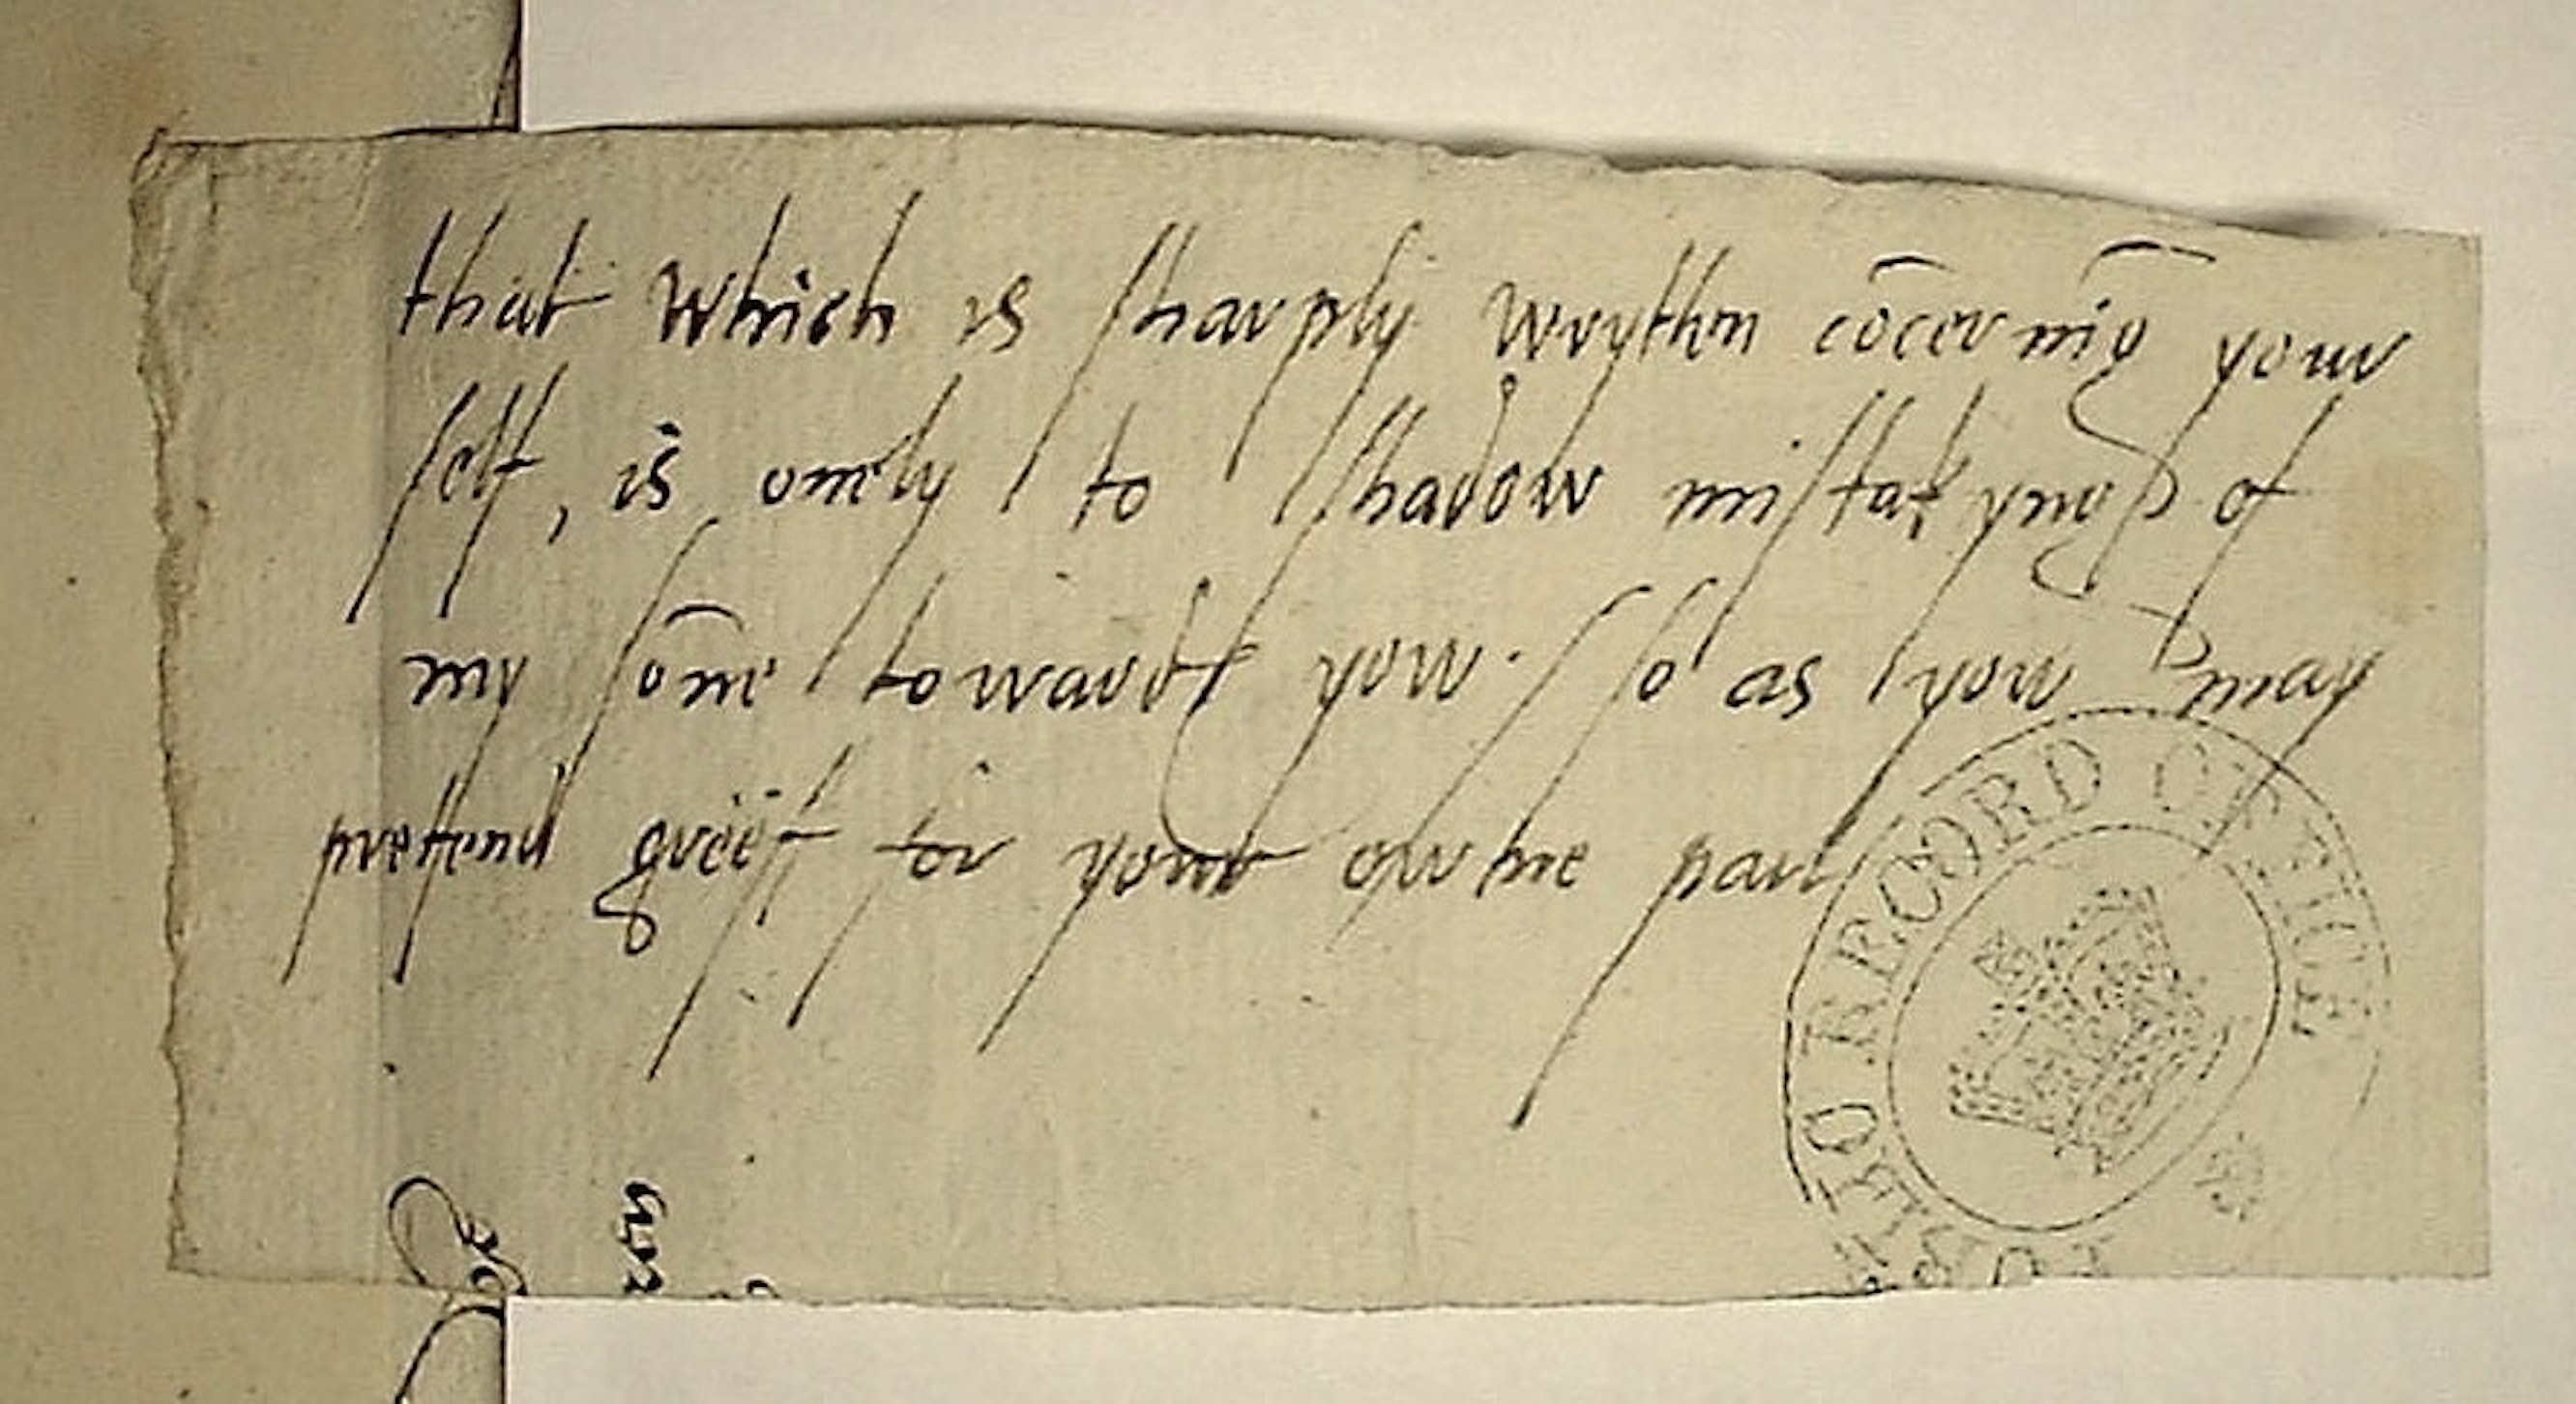 that which is sharply wrytten cōcernīg your
self, is onely to shadow mistakyngs of
my sōne towards yow. so as yow may
prettend greef for your owne part
PUBLIC RECORD OFFICE